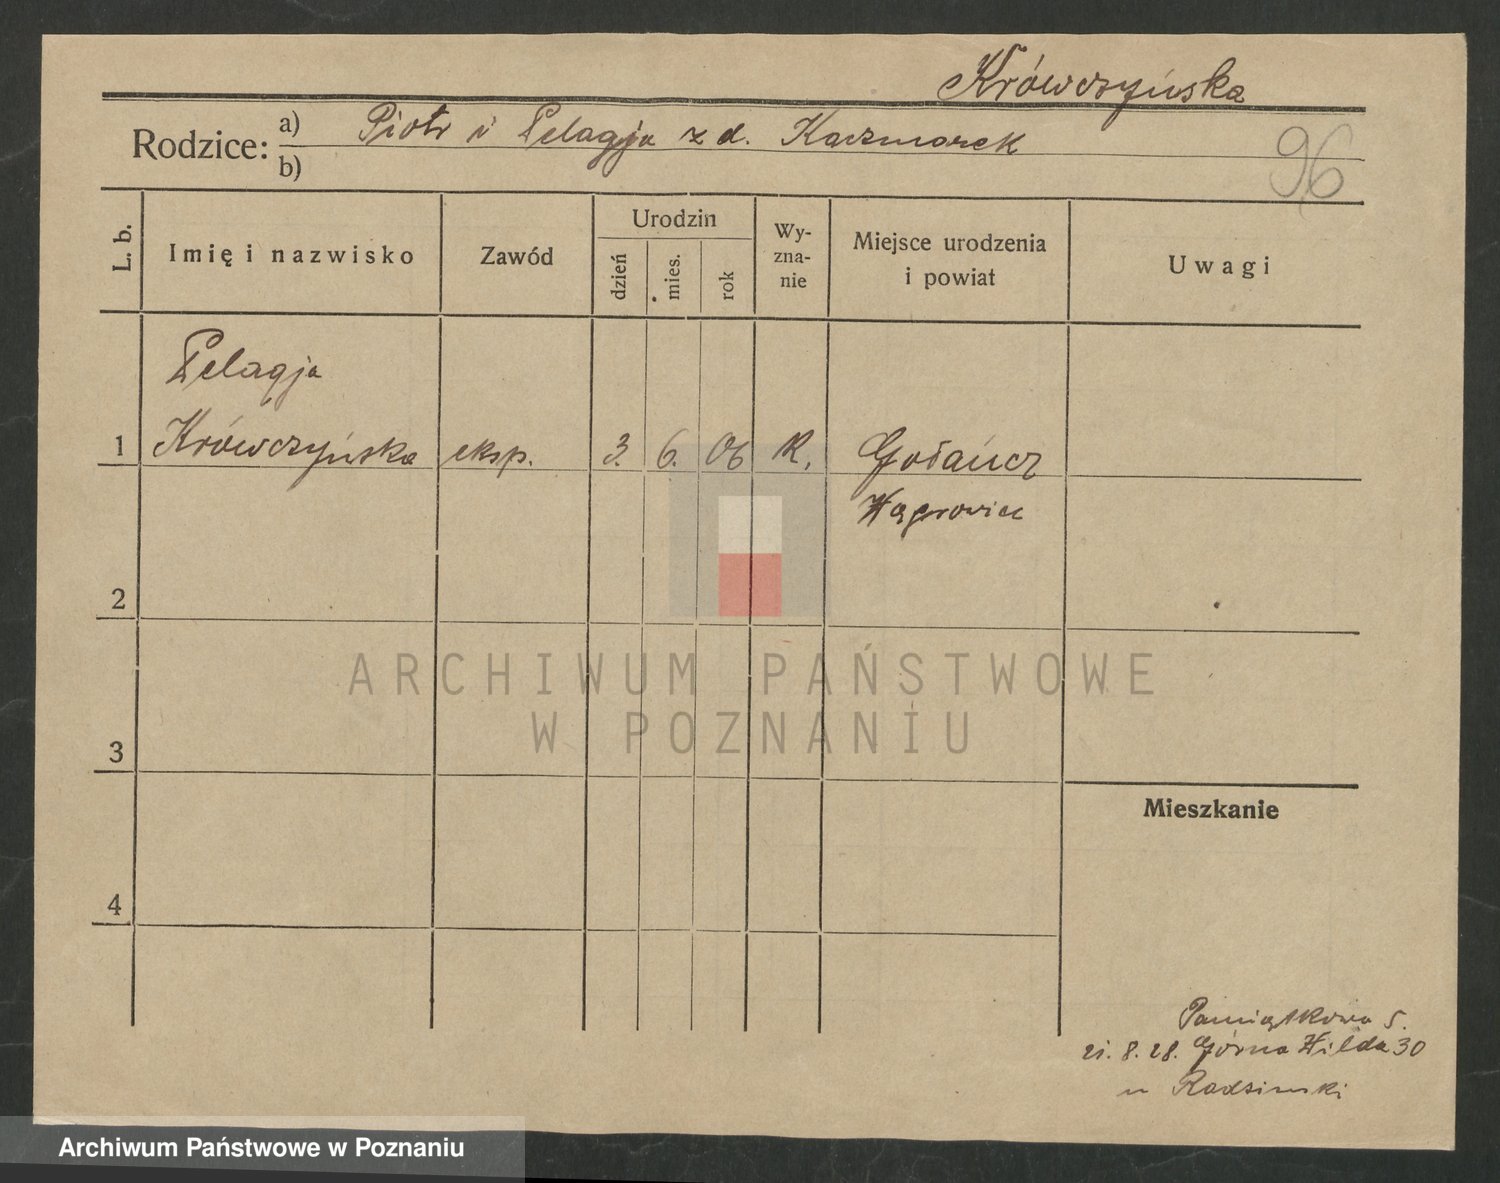 Krówczyńska
Rodzice: a) Piotr i Pelagja z d. Kaczmarek
b)
96
L. b.
Imię i nazwisko
Zawód
Urodzin
dzień
mies.
rok
Wy-
zna-
nie
Miejsce urodzenia
i powiat
Uwagi
Pelagja
1 Krówczyńska eksp. 3. 6. 06 R. Gołańcz
Wągrowiec
2
3
4
Mieszkanie
Pamiątkowa 5.
21. 8. 28. Górna Wilda 30
u Radzimski
ARCHIWUM PAŃSTWOWE
W POZNANIU
Archiwum Państwowe w Poznaniu